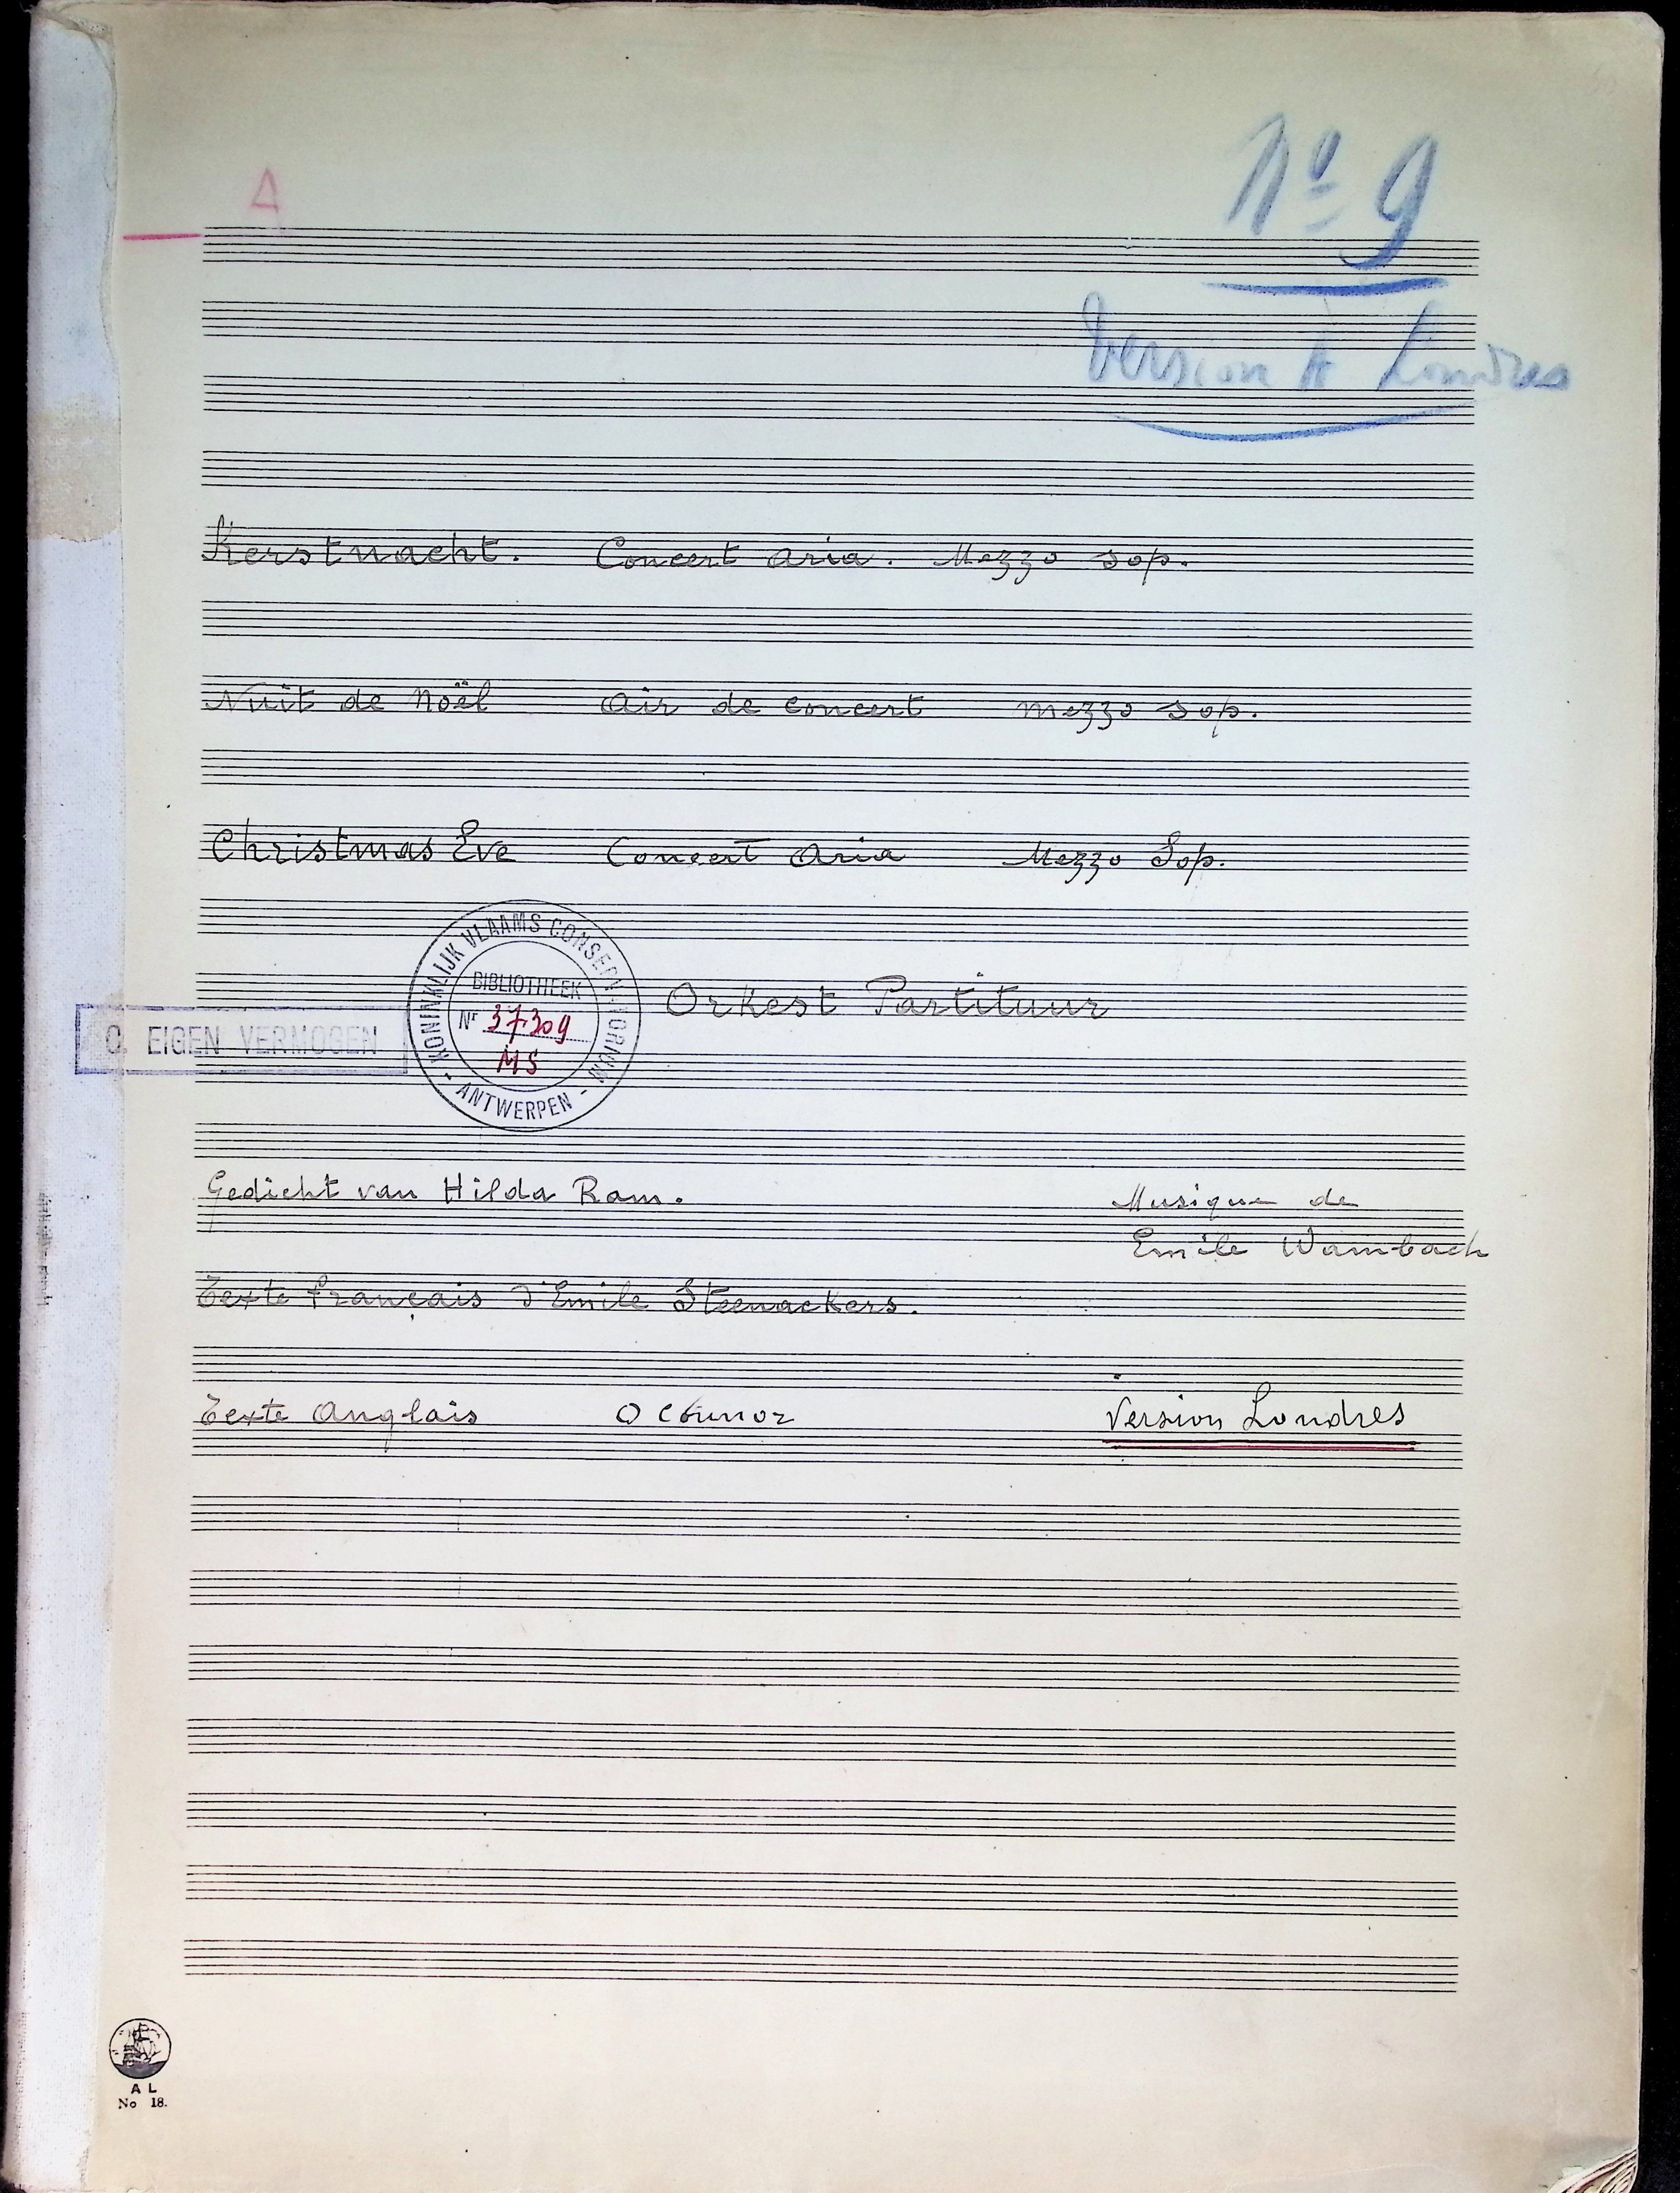 A
Nº 9
Version A Londres
Kerstnacht. Concert aria. Mezzo sop.
Nuit de Noël Air de concert mezzo sop.
Christmas Eve Concert Aria Mezzo Sop.
KONINKLIJK VLAAMS CONSERVATORIUM
- ANTWERPEN -
BIBLIOTHEEK
Nr 37309
MS
Orkest Partituur
C. EIGEN VERMOGEN
Gedicht van Hilda Ram.
Musique de
Emile Wambach
Texte français d'Emile Steenackers.
Texte Anglais O Connor
Version Londres
A L
No 18.